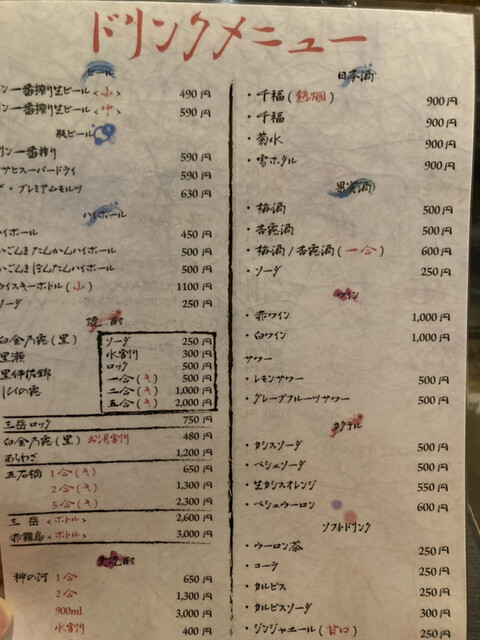 ドリンクメニュー
ビール
ン一番搾り生ビール〈小〉 490円
ン一番搾り生ビール〈中〉 590円
瓶ビール
リン一番搾り 590円
サヒスーパードライ 590円
ザ・プレミアムモルツ 630円
ハイボール
ハイボール 450円
かごんまたんかんハイボール 500円
かごんまぽんたんハイボール 500円
ウイスキーボトル(小) 1100円
ソーダ 250円
焼酎
白金乃露(黒)
黒瀬
黒伊佐錦
ソーダ 250円
水割り 300円
ロック 500円
一合(キ) 500円
二合(キ) 1,000円
五合(キ) 2,000円
三岳ロック 750円
白金乃露(黒) お湯割り 480円
あらわざ 1,200円
五右橋 1合(キ) 650円
2合(キ) 1,300円
5合(キ) 2,300円
三岳〈ボトル〉 2,600円
赤霧島〈ボトル〉 3,000円
麦焼酎
神の河 1合 650円
2合 1,300円
900ml 3,000円
水割り 400円
日本酒
・千福(熱燗) 900円
・千福 900円
・菊水 900円
・雪ホタル 900円
果実酒
・梅酒 500円
・杏露酒 500円
・梅酒/杏露酒(一合) 600円
・ソーダ 250円
ワイン
・赤ワイン 1,000円
・白ワイン 1,000円
サワー
・レモンサワー 500円
・グレープフルーツサワー 500円
カクテル
・カシスソーダ 500円
・ペシェソーダ 500円
・生カシスオレンジ 550円
・ペシェウーロン 600円
ソフトドリンク
・ウーロン茶 250円
・コーラ 250円
・カルピス 250円
・カルピスソーダ 300円
・ジンジャエール(甘口) 250円